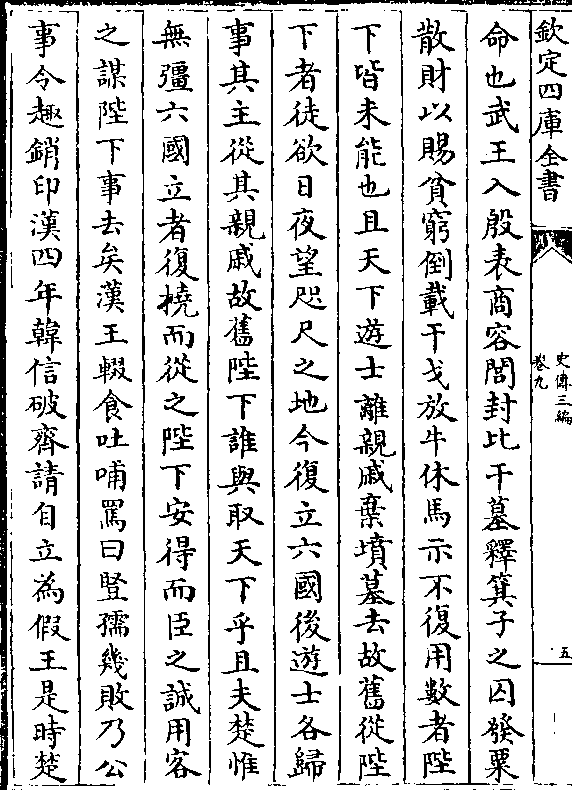 欽定四庫全書
史傳三編
卷九
五
命也武王入殷表商容閭封比干墓釋箕子之囚發粟
散財以賜貧窮倒載干戈放牛休馬示不復用數者陛
下皆未能也且天下遊士離親戚棄墳墓去故舊從陛
下者徒欲日夜望咫尺之地今復立六國後遊士各歸
事其主從其親戚故舊陛下誰與取天下乎且夫楚惟
無彊六國立者復橈而從之陛下安得而臣之誠用客
之謀陛下事去矣漢王輟食吐哺罵曰豎孺幾敗乃公
事令趣銷印漢四年韓信破齊請自立為假王是時楚